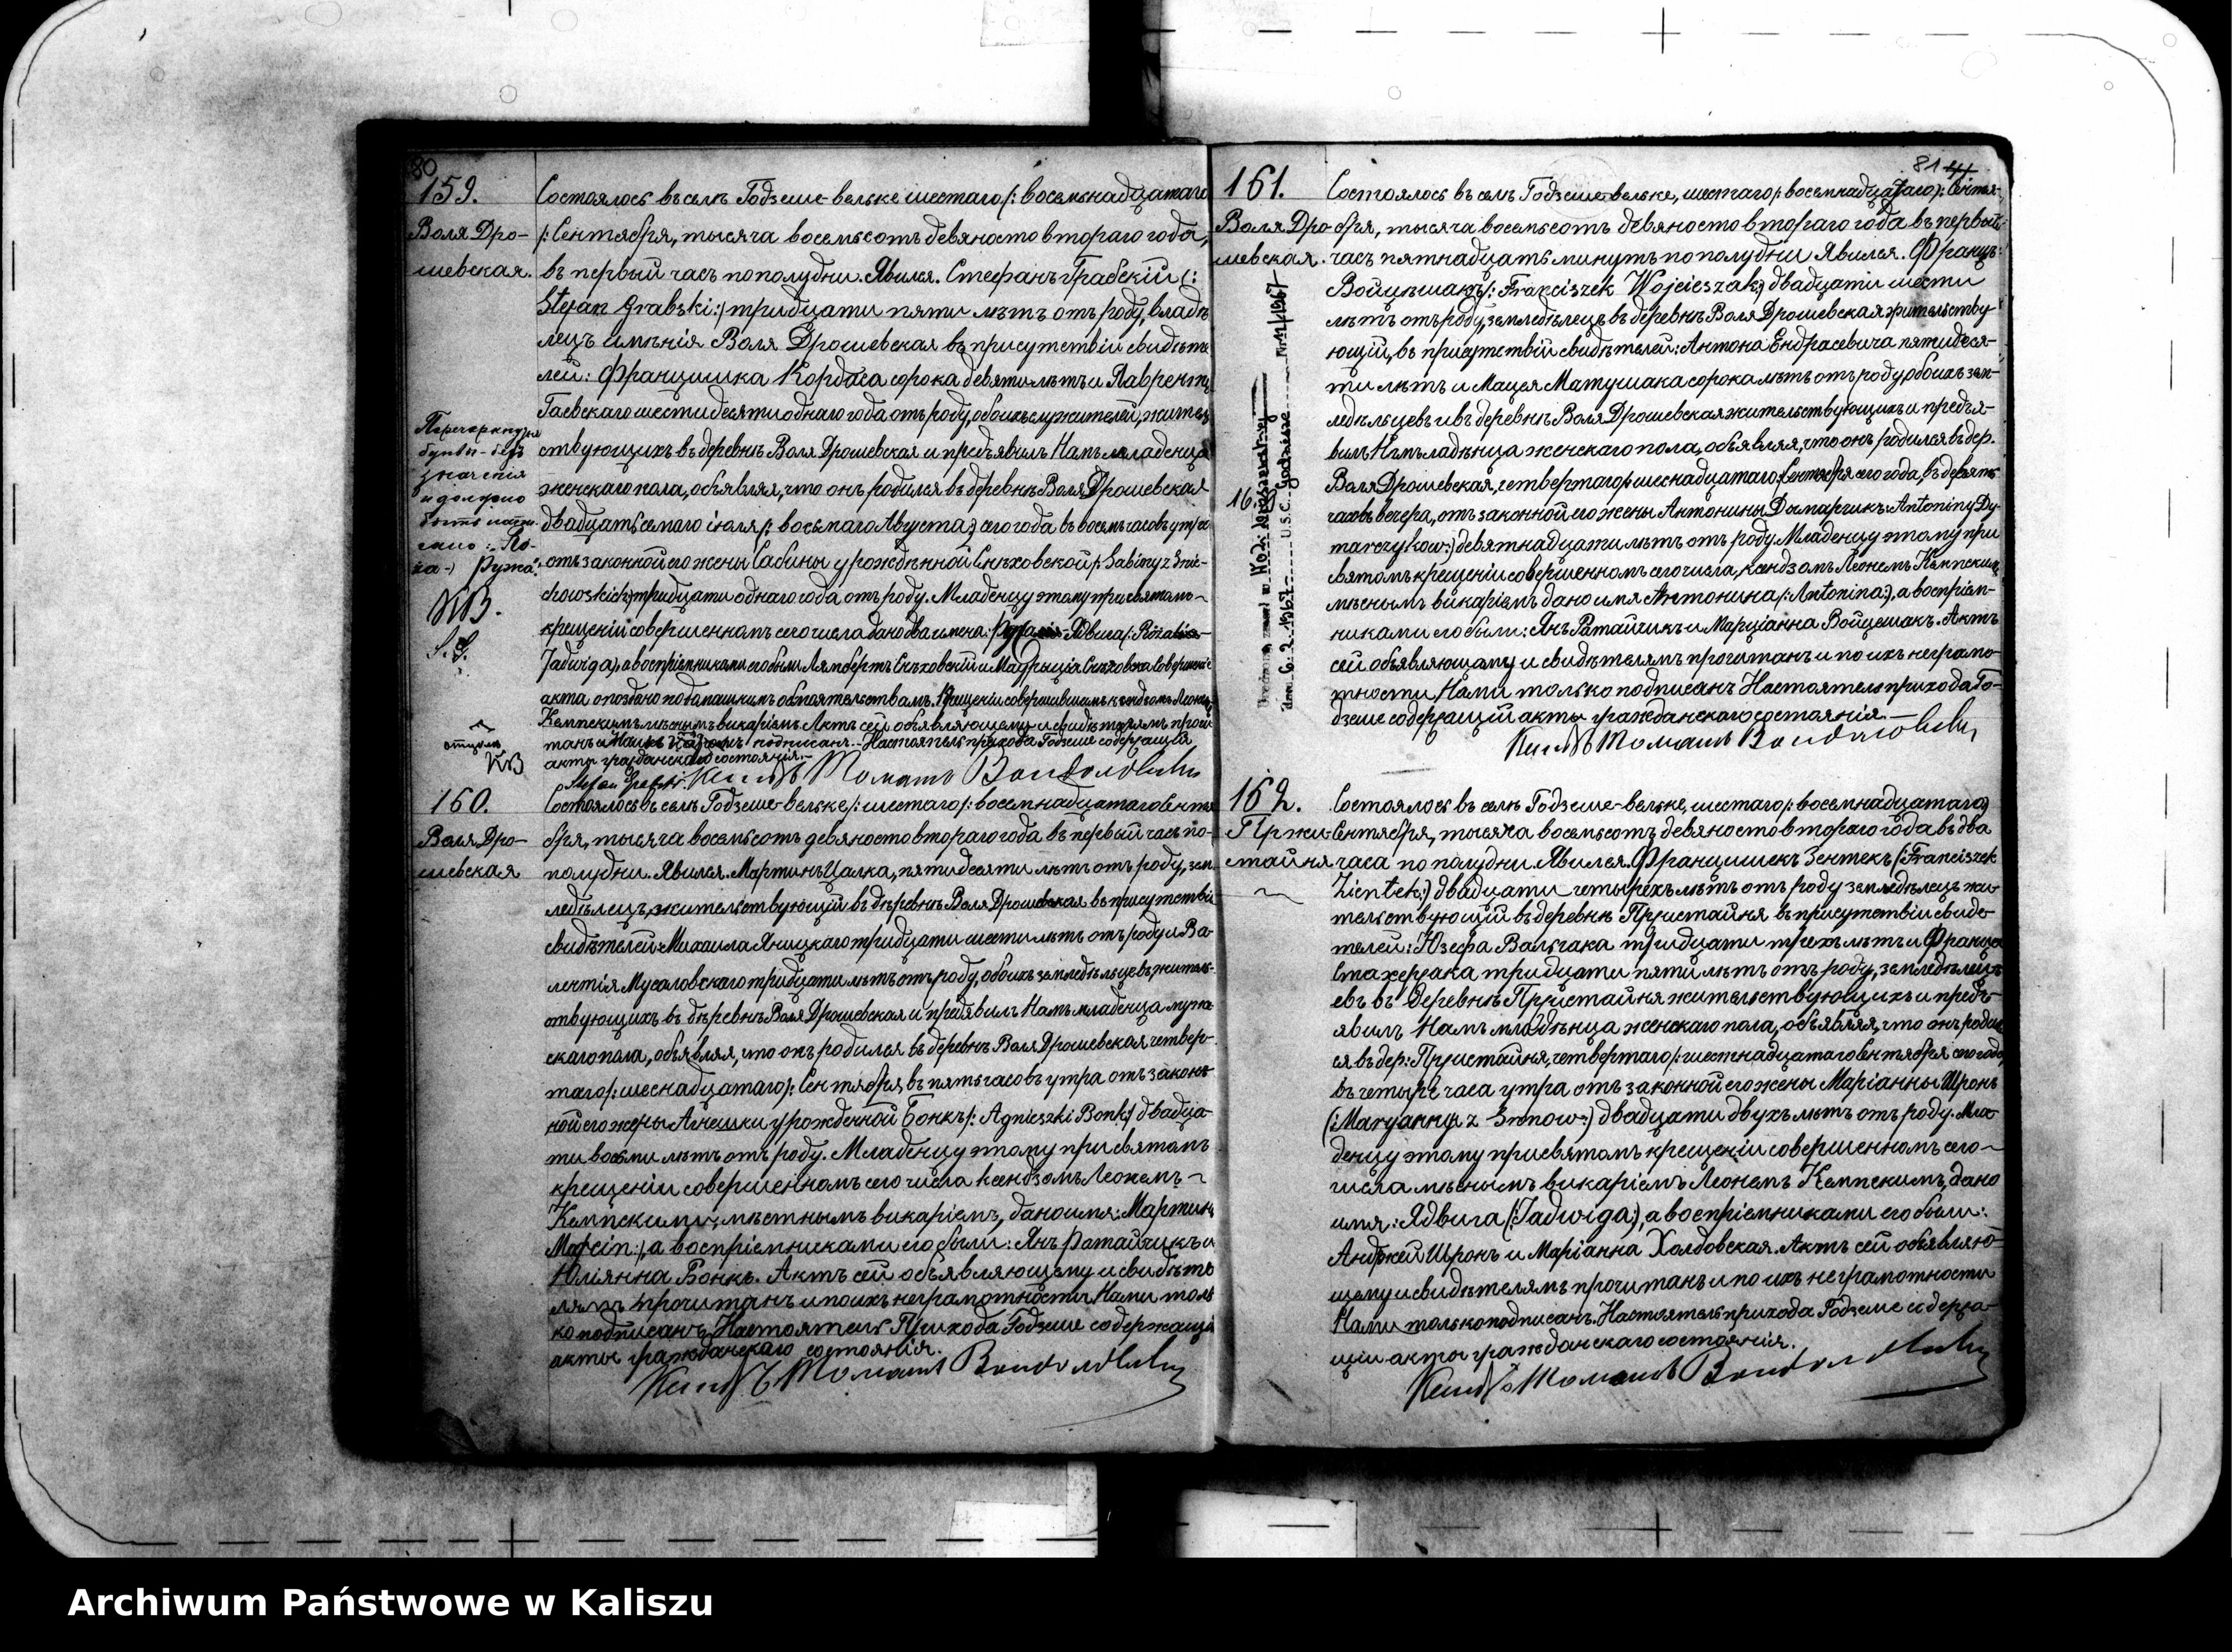 80
159.
Воля Дро-
шевская.
Состоялось въ селѣ Годзеше-вельке шестаго /: восемьнадцатаго
/: Сентября, тысяча восемьсотъ девяносто втораго года,
въ первый часъ пополудни. Явился. Стефанъ Грабскій (:
Stefan Grabski:) тридцати пяти лѣтъ отъ роду, владѣ
лецъ имѣнія Воля Дрошевская въ присутствіи свидѣте
лей: Францишка Кордаса сорока девяти лѣтъ и Лаврентія
Гаевскаго шестидесяти одного года отъ роду, обоихъ служителей, житель
ствующихъ въ деревнѣ Воля Дрошевская и предъявилъ Намъ младенца
женскаго пола, объявляя, что онъ родился въ деревнѣ Воля Дрошевская
двадцать седьмаго іюля /: восьмаго Августа:/ сего года въ восемь часовъ утра
отъ законной его жены Сабины урожденной Снѣховской /: Sabiny z Śnie-
chowskich:) тридцати одного года отъ роду. Младенцу этому при святомъ
крещеніи совершенномъ сего числа дано два имена: Ядвига /: Rozalia
Jadwiga), а воспріемниками его были Ламбертъ Снѣховскій и Снѣховска Совершеніе
акта опоздано по домашнимъ обстоятельствамъ. Крещеніи совершившемъ ксендзомъ Леономъ
Кемпскимъ мѣстнымъ викаріемъ. Актъ сей объявляющему и свидѣтелямъ прочи
танъ и Нами подписанъ. Настоятель прихода Годзеше содержащій
акты гражданскаго состоянія.
Stefan Grabski. Ксендзъ Томашъ
Перечеркнутыя
буквы - безъ
значенія
и должно
быть напи-
сано: Ро-
за -) Ружа.
КВ.
S. G.
КВ
160.
Воля Дро-
шевская
Состоялось въ селѣ Годзеше-вельке /: шестаго /: восемнадцатаго Сентя
бря, тысяча восемьсотъ девяносто втораго года въ первый часъ по-
полудни. Явился. Мартинъ Цалка, пятидесяти лѣтъ отъ роду, зем
ледѣлецъ, жительствующій въ деревнѣ Воля Дрошевская въ присутствіи
свидѣтелей: Михаила Яницкаго тридцати шести лѣтъ отъ роду и Ва-
лентія Мусяловскаго тридцати лѣтъ отъ роду, обоихъ земледѣльцевъ, житель-
ствующихъ въ деревнѣ Воля Дрошевская и предъявилъ Намъ младенца муж-
скаго пола, объявляя, что онъ родился въ деревнѣ Воля Дрошевская четвер-
таго /: шеснадцатаго /: Сентября, въ пять часовъ утра отъ закон-
ной его жены Агнешки урожденной Бонкъ /: Agnieszki Bonk:/ двадца-
ти восьми лѣтъ отъ роду. Младенцу этому при святомъ
крещеніи совершенномъ сего числа ксендзомъ Леономъ
Кемпскимъ, мѣстнымъ викаріемъ, дано имя: Мартинъ
Marcin:/, а воспріемниками его были: Янъ Ратайчикъ и
Юліянна Бонкъ. Актъ сей объявляющему и свидѣте
лямъ прочитанъ и по ихъ неграмотности Нами толь
ко подписанъ. Настоятель Прихода Годзеше содержащій
акты гражданскаго состоянія.
Ксендзъ Томашъ
81
161.
Воля Дро-
шевская.
Состоялось въ селѣ Годзеше вельке, шестаго /: восемнадцатаго /: Сентя-
бря, тысяча восемьсотъ девяносто втораго года въ первый
часъ пятнадцать минутъ пополудни Явился. Францъ:
Войцѣшакъ /: Franciszek Wojcieszak:) двадцати шести
лѣтъ отъ роду, земледѣлецъ въ деревнѣ Воля Дрошевская жительству
ющій, въ присутствіи свидѣтелей: Антона Ендрасевича пятидеся-
ти лѣтъ и Мацея Матушака сорока лѣтъ отъ роду, обоихъ зем-
ледѣльцевъ и въ деревнѣ Воля Дрошевская жительствующихъ и предъя-
вилъ Намъ младенца женскаго пола, объявляя, что онъ родился въ дер.
Воля Дрошевская, четвертаго /: шеснадцатаго /: Сентября сего года, въ девять
часовъ вечера, отъ законной его жены Антонины Домарчикъ: Antoniny Do
marczykow:) девятнадцати лѣтъ отъ роду. Младенцу этому при
святомъ крещеніи совершенномъ сего числа, ксендзомъ Леономъ Кемпскимъ
мѣстнымъ викаріемъ дано имя Антонина (: Antonina:), а воспріем-
никами его были: Янъ Ратайчикъ и Марціанна Войцешакъ. Актъ
сей объявляющему и свидѣтелямъ прочитанъ и по ихъ неграмо-
тности Нами только подписанъ Настоятель прихода Го-
дзеше содержащій акты гражданскаго состоянія.
Ксендзъ Томашъ
dnia 6.2.1967 U.S.C. Godziesze Nr 12/1967
162.
Пржи-
стайня
Состоялось въ селѣ Годзеше-вельке, шестаго /: восемнадцатаго)
Сентября, тысяча восемьсотъ девяносто втораго года въ два
часа по полудни. Явился. Францишекъ Зентекъ (: Franciszek
Zientek:) двадцати четырехъ лѣтъ отъ роду земледѣлецъ жи-
тельствующій въ деревнѣ Пржистайня въ присутствіи свиде-
телей: Юзефа Вальчака тридцати трехъ лѣтъ и Франца
Стахержака тридцати пяти лѣтъ отъ роду, земледѣльц
евъ въ деревнѣ Пржистайня жительствующихъ и предъ-
явилъ Намъ младенца женскаго пола, объявляя, что онъ родил
ся въ дер: Пржистайня, четвертаго /: шестнадцатаго Сентября сего года,
въ четыре часа утра отъ законной его жены Маріанны Шронъ
(: Maryanny z Sronow:) двадцати двухъ лѣтъ отъ роду. Мла
денцу этому при святомъ крещеніи совершенномъ сего
числа мѣстнымъ викаріемъ Леономъ Кемпскимъ, дано
имя: Ядвига (: Jadwiga:), а воспріемниками его были:
Анджей Шронъ и Маріанна Холдовская. Актъ сей объявляю-
щему и свидѣтелямъ прочитанъ и по ихъ неграмотности
Нами только подписанъ. Настоятель прихода Годзеше содержа-
щій акты гражданскаго состоянія.
Ксендзъ Томашъ
Archiwum Państwowe w Kaliszu